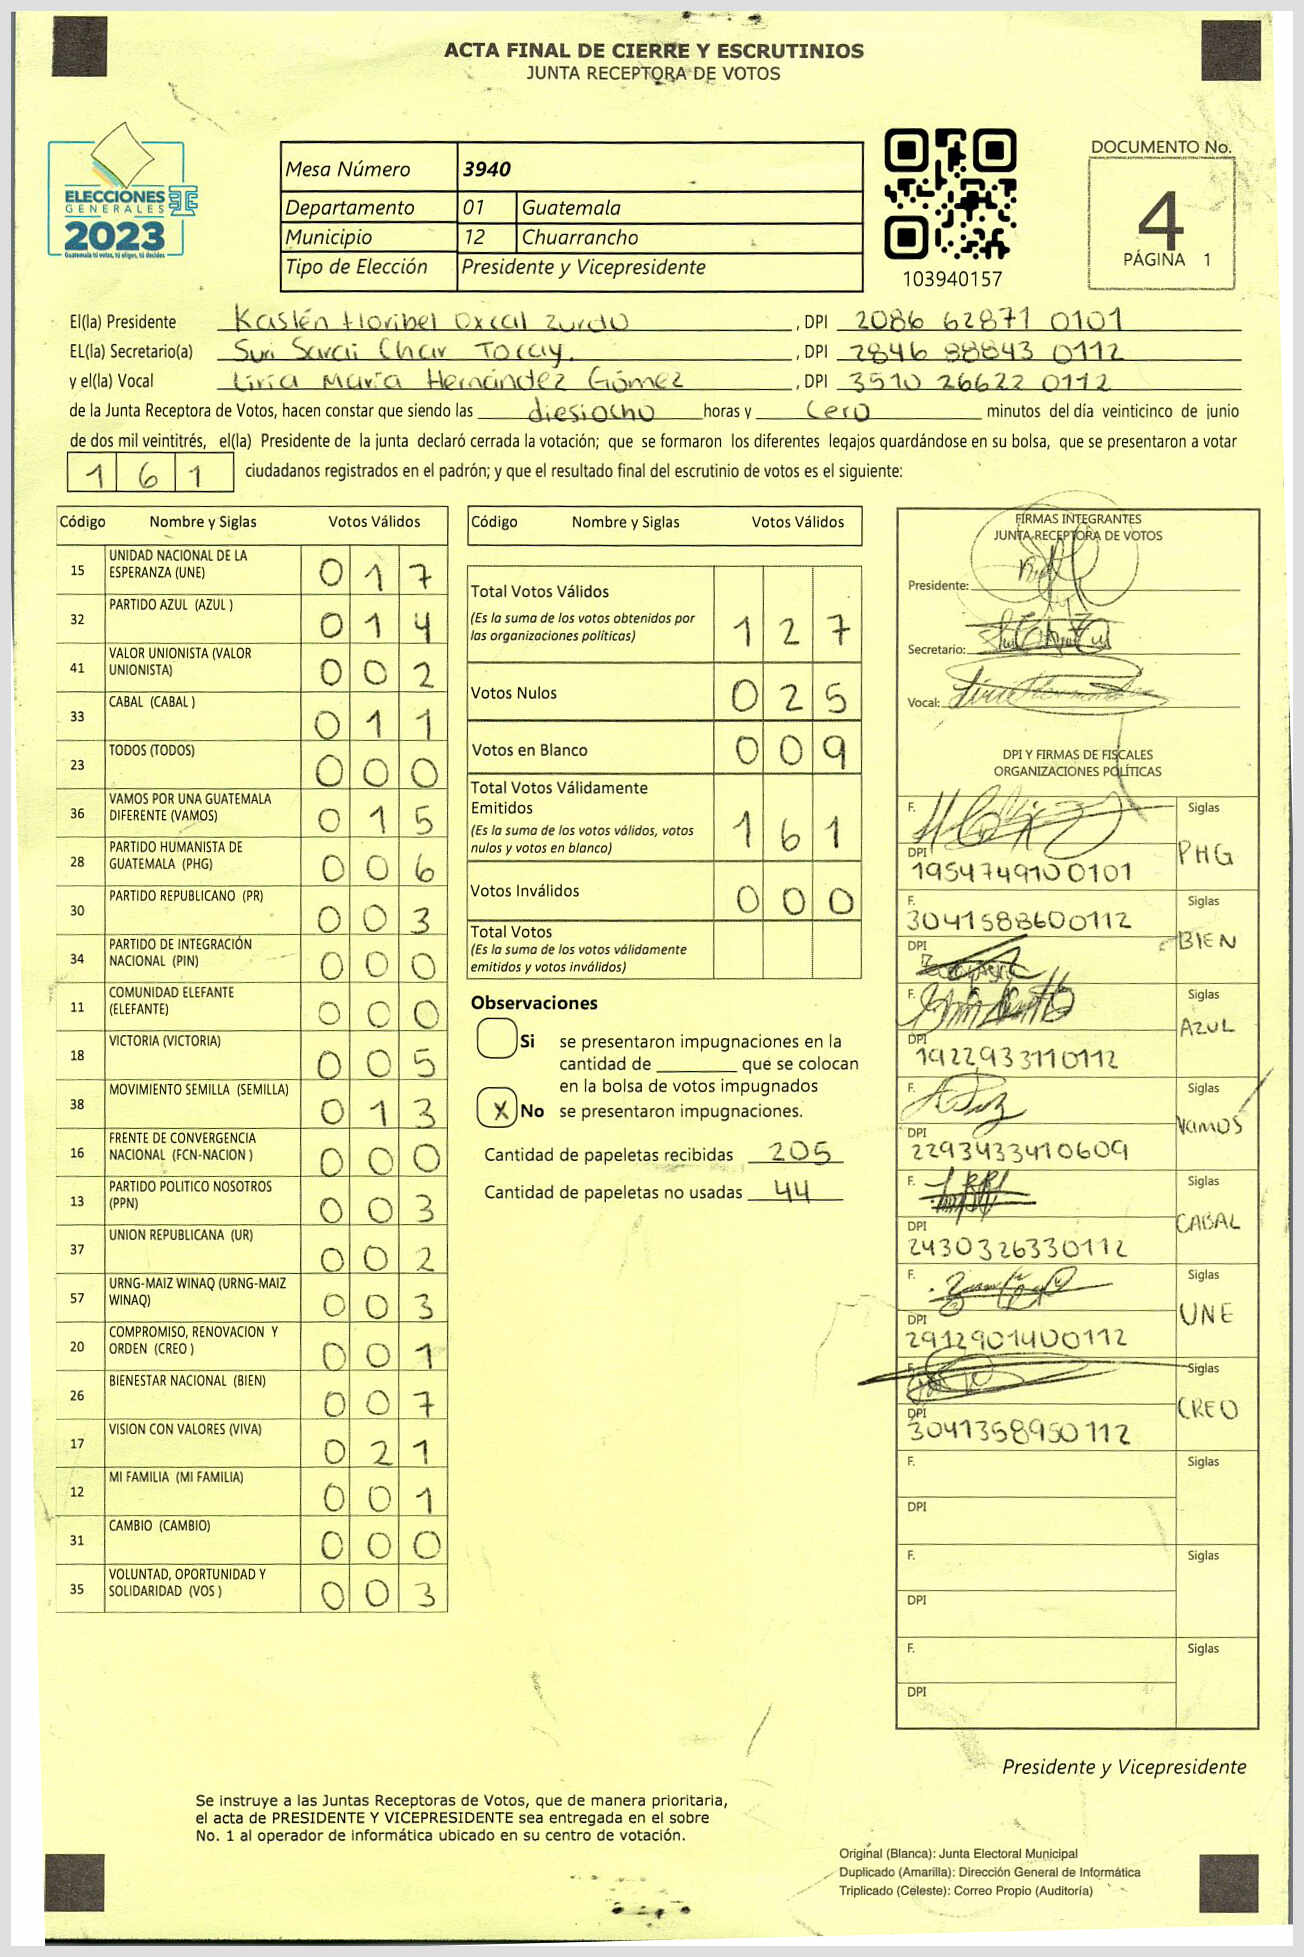 ACTA FINAL DE CIERRE Y ESCRUTINIOS
JUNTA RECEPTORA DE VOTOS
ELECCIONES
GENERALES
2023
Guatemala tú votas, tú eliges, tú decides
Mesa Número 3940
Departamento 01 Guatemala
Municipio 12 Chuarrancho
Tipo de Elección Presidente y Vicepresidente
103940157
DOCUMENTO No.
4
PÁGINA 1
El(la) Presidente Kaslén Floribel Oxcal Zurdo, DPI 2086 62871 0101
EL(la) Secretario(a) Suri Sarai Char Tocay., DPI 2846 88843 0112
y el(la) Vocal Liria María Hernández Gómez, DPI 3510 26622 0112
de la Junta Receptora de Votos, hacen constar que siendo las diesiocho horas y cero minutos del día veinticinco de junio
de dos mil veintitrés, el(la) Presidente de la junta declaró cerrada la votación; que se formaron los diferentes legajos guardándose en su bolsa, que se presentaron a votar
161 ciudadanos registrados en el padrón; y que el resultado final del escrutinio de votos es el siguiente:
Código Nombre y Siglas Votos Válidos
15 UNIDAD NACIONAL DE LA ESPERANZA (UNE) 017
32 PARTIDO AZUL (AZUL ) 014
41 VALOR UNIONISTA (VALOR UNIONISTA) 002
33 CABAL (CABAL ) 011
23 TODOS (TODOS) 000
36 VAMOS POR UNA GUATEMALA DIFERENTE (VAMOS) 015
28 PARTIDO HUMANISTA DE GUATEMALA (PHG) 006
30 PARTIDO REPUBLICANO (PR) 003
34 PARTIDO DE INTEGRACIÓN NACIONAL (PIN) 000
11 COMUNIDAD ELEFANTE (ELEFANTE) 000
18 VICTORIA (VICTORIA) 005
38 MOVIMIENTO SEMILLA (SEMILLA) 013
16 FRENTE DE CONVERGENCIA NACIONAL (FCN-NACION ) 000
13 PARTIDO POLITICO NOSOTROS (PPN) 003
37 UNION REPUBLICANA (UR) 002
57 URNG-MAIZ WINAQ (URNG-MAIZ WINAQ) 003
20 COMPROMISO, RENOVACION Y ORDEN (CREO ) 001
26 BIENESTAR NACIONAL (BIEN) 007
17 VISION CON VALORES (VIVA) 021
12 MI FAMILIA (MI FAMILIA) 001
31 CAMBIO (CAMBIO) 000
35 VOLUNTAD, OPORTUNIDAD Y SOLIDARIDAD (VOS ) 003
Código Nombre y Siglas Votos Válidos
Total Votos Válidos 127
(Es la suma de los votos obtenidos por
las organizaciones políticas)
Votos Nulos 025
Votos en Blanco 009
Total Votos Válidamente
Emitidos 161
(Es la suma de los votos válidos, votos
nulos y votos en blanco)
Votos Inválidos 000
Total Votos
(Es la suma de los votos válidamente
emitidos y votos inválidos)
Observaciones
Si se presentaron impugnaciones en la
cantidad de ________ que se colocan
en la bolsa de votos impugnados
X No se presentaron impugnaciones.
Cantidad de papeletas recibidas 205
Cantidad de papeletas no usadas 44
FIRMAS INTEGRANTES
JUNTA RECEPTORA DE VOTOS
Presidente:
Secretario:
Vocal:
DPI Y FIRMAS DE FISCALES
ORGANIZACIONES POLÍTICAS
F. Siglas
PHG
DPI
1954749100101
F. Siglas
3041588600112
BIEN
DPI
F. Siglas
AZUL
DPI
1922933110112
F. Siglas
VAMOS
DPI
2293433410609
F. Siglas
CABAL
DPI
2430326330112
F. Siglas
UNE
DPI
2912901400112
F. Siglas
CREO
DPI
3041358950112
F. Siglas
DPI
F. Siglas
DPI
F. Siglas
DPI
Presidente y Vicepresidente
Se instruye a las Juntas Receptoras de Votos, que de manera prioritaria,
el acta de PRESIDENTE Y VICEPRESIDENTE sea entregada en el sobre
No. 1 al operador de informática ubicado en su centro de votación.
Original (Blanca): Junta Electoral Municipal
Duplicado (Amarilla): Dirección General de Informática
Triplicado (Celeste): Correo Propio (Auditoría)